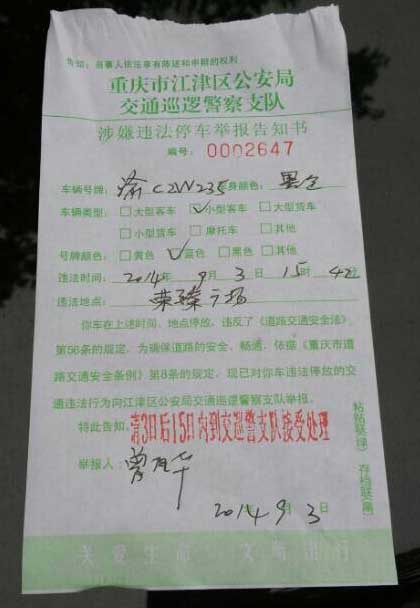 告知：当事人依法享有陈述和申辩的权利
重庆市江津区公安局
交通巡逻警察支队
涉嫌违法停车举报告知书
编号：0002647
车辆号牌：渝C2W235 车身颜色：黑色
车辆类型：□大型客车 ☑小型客车 □大型货车
□小型货车 □摩托车 □其他
号牌颜色：□黄色 ☑蓝色 □黑色 □其他
违法时间：2014年9月3日15时42分
违法地点：荣臻广场
你车在上述时间、地点停放，违反了《道路交通安全法》
第56条的规定，为确保道路的安全、畅通，依据《重庆市道
路交通安全条例》第8条的规定，现已对你车违法停放的交
通违法行为向江津区公安局交通巡逻警察支队举报。
特此告知。第3日后15日内到交巡警支队接受处理
举报人：曾
2014年9月3日
粘贴联(绿) 存档联(黑)
关爱生命 文明出行